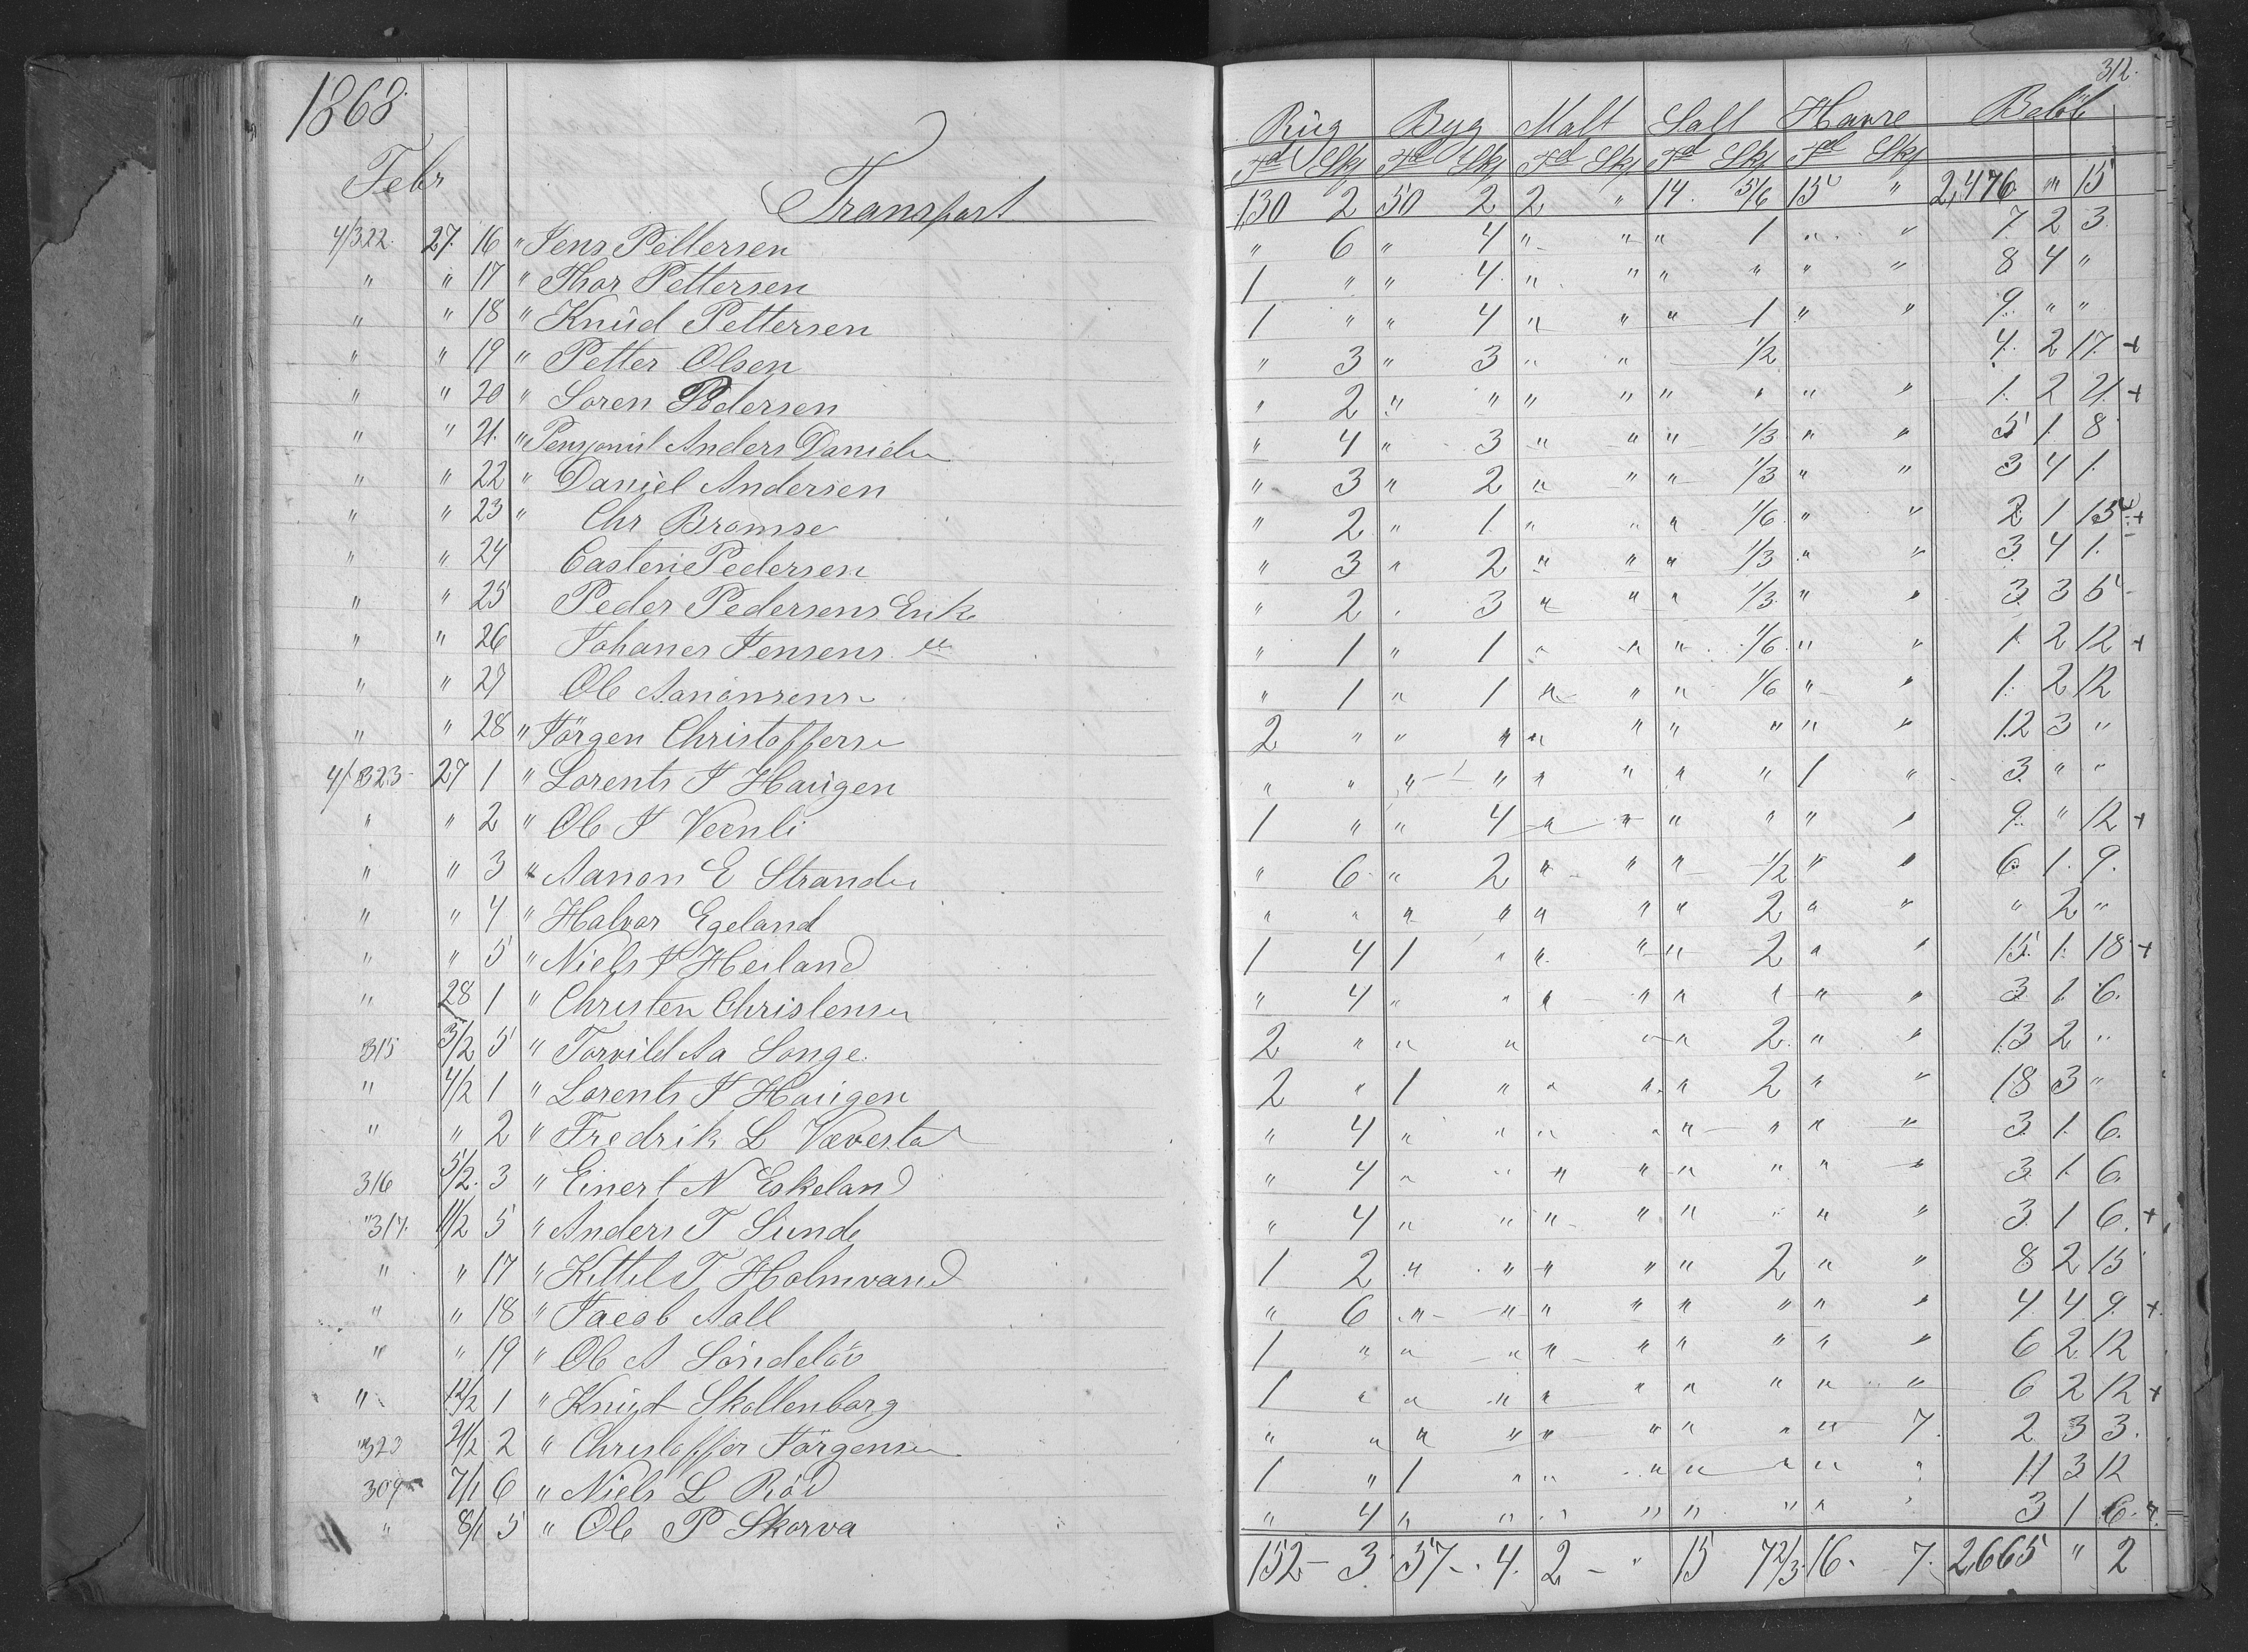 1868
312.
Rüg Byg Malt Salt Havre Beløb
Febr
Td Skj Td Skj Td Skj Td Skj Td Skj
Transport 130 2 50 2 2 " 14. 5/6 15 " 2,476 " 15
4/322. 27. 16 " Jens Pettersen " 6 " 4 " " " 1 " " 7 2 3
" " 17 " Thor Pettersen 1 " " 4 " " " " " " 8 4 "
" " 18 " Knüd Pettersen 1 " " 4 " " " 1 " " 9 " "
" " 19 " Petter Olsen " 3 " 3 " " 1/2 4. 2 17. +
" " 20 " Soren Pedersen " 2 " " " " " " " " 1. 2 21. +
" " 21. " Anders Daniels " 4 " 3 " " " 1/3 " " 5 1. 8
" " 22 " Daniel Andersen " 3 " 2 " " " 1/3 " " 3 4 1.
" " 23 " Chr Bromse " 2 " 1 " " " 1/6 " " 2 1 15 +
" " 24 Casten Pedersen " 3 " 2 " " " 1/3 " " 3. 4 1.
" " 25 Peder Pedersens Enk " 2 . 3 " " " 1/3 " " 3. 3 5
" " 26 Johanes Jensens " " 1 " 1 " " " 1/6 " " 1. 2 12 +
" " 27 Ole Aanonsens " 1 " 1 " " " 1/6 " " 1. 2 12
" " 28 " Jörgen Christoffers 2 " " " " " " " " " 12 3 "
4/323 27 1 " Lorents J Haugen " " " " " " " " 1 " 3. " "
" " 2 " Ole J Vernli 1 " " 4 " " " " " " 9. " 12 +
" " 3 " Aanon E Strande " 6 " 2 " " " 1/2 " " 6 1. 9.
" " 4 " Halvor Egeland " " " " " " " 2 " " " 2 "
" " 5 " Niels J Heiland 1 4 1 " " " " 2 " " 15. 1. 18 +
" 28 1 " Christen Christensen " 4 " " " " " " " " 3 1. 6.
315 3/2 5 " Torvild Aa Songe 2 " " " " " 2 " " 13 2 "
" 4/2 1 " Lorents J Haugen 2 " 1 " " " " 2 " " 18 3 "
" " 2 " Fredrik L Væverstad " 4 " " " " " " " " 3. 1. 6.
316 5/2. 3 " Einert N Eskeland " 4 " " " " " " " " 3 1. 6.
" 317. 11/2 5 " Anders T Sunde " 4 " " " " " " " " 3. 1 6. +
" " 17 " Kittel T Holmvand 1 2 " " " " " 2 " " 8 2 15
" " 18 " Jacob Aall " 6 " " " " " " " " 4. 4 9. +
" " 19 " Ole A Söndelöv 1 " " " " " " " " " 6 2 12
" 12/2 1 " Knüd Skollenborg 1 " " " " " " " " " 6 2 12 +
" 323 21/2 2 " Christoffer Jörgensen " " " " " " " " " 7. 2 3 3.
309 7/1 6 " Niels L Röd 1 " 1 " " " " " " " 11 3 12
" 8/1 5 " Ole P Skorva " 4 " " " " " " " " 3 1 6. +
152 - 3 57 - 4. 2 - " 15 7 2/3 16. 7. 2,665 " 2